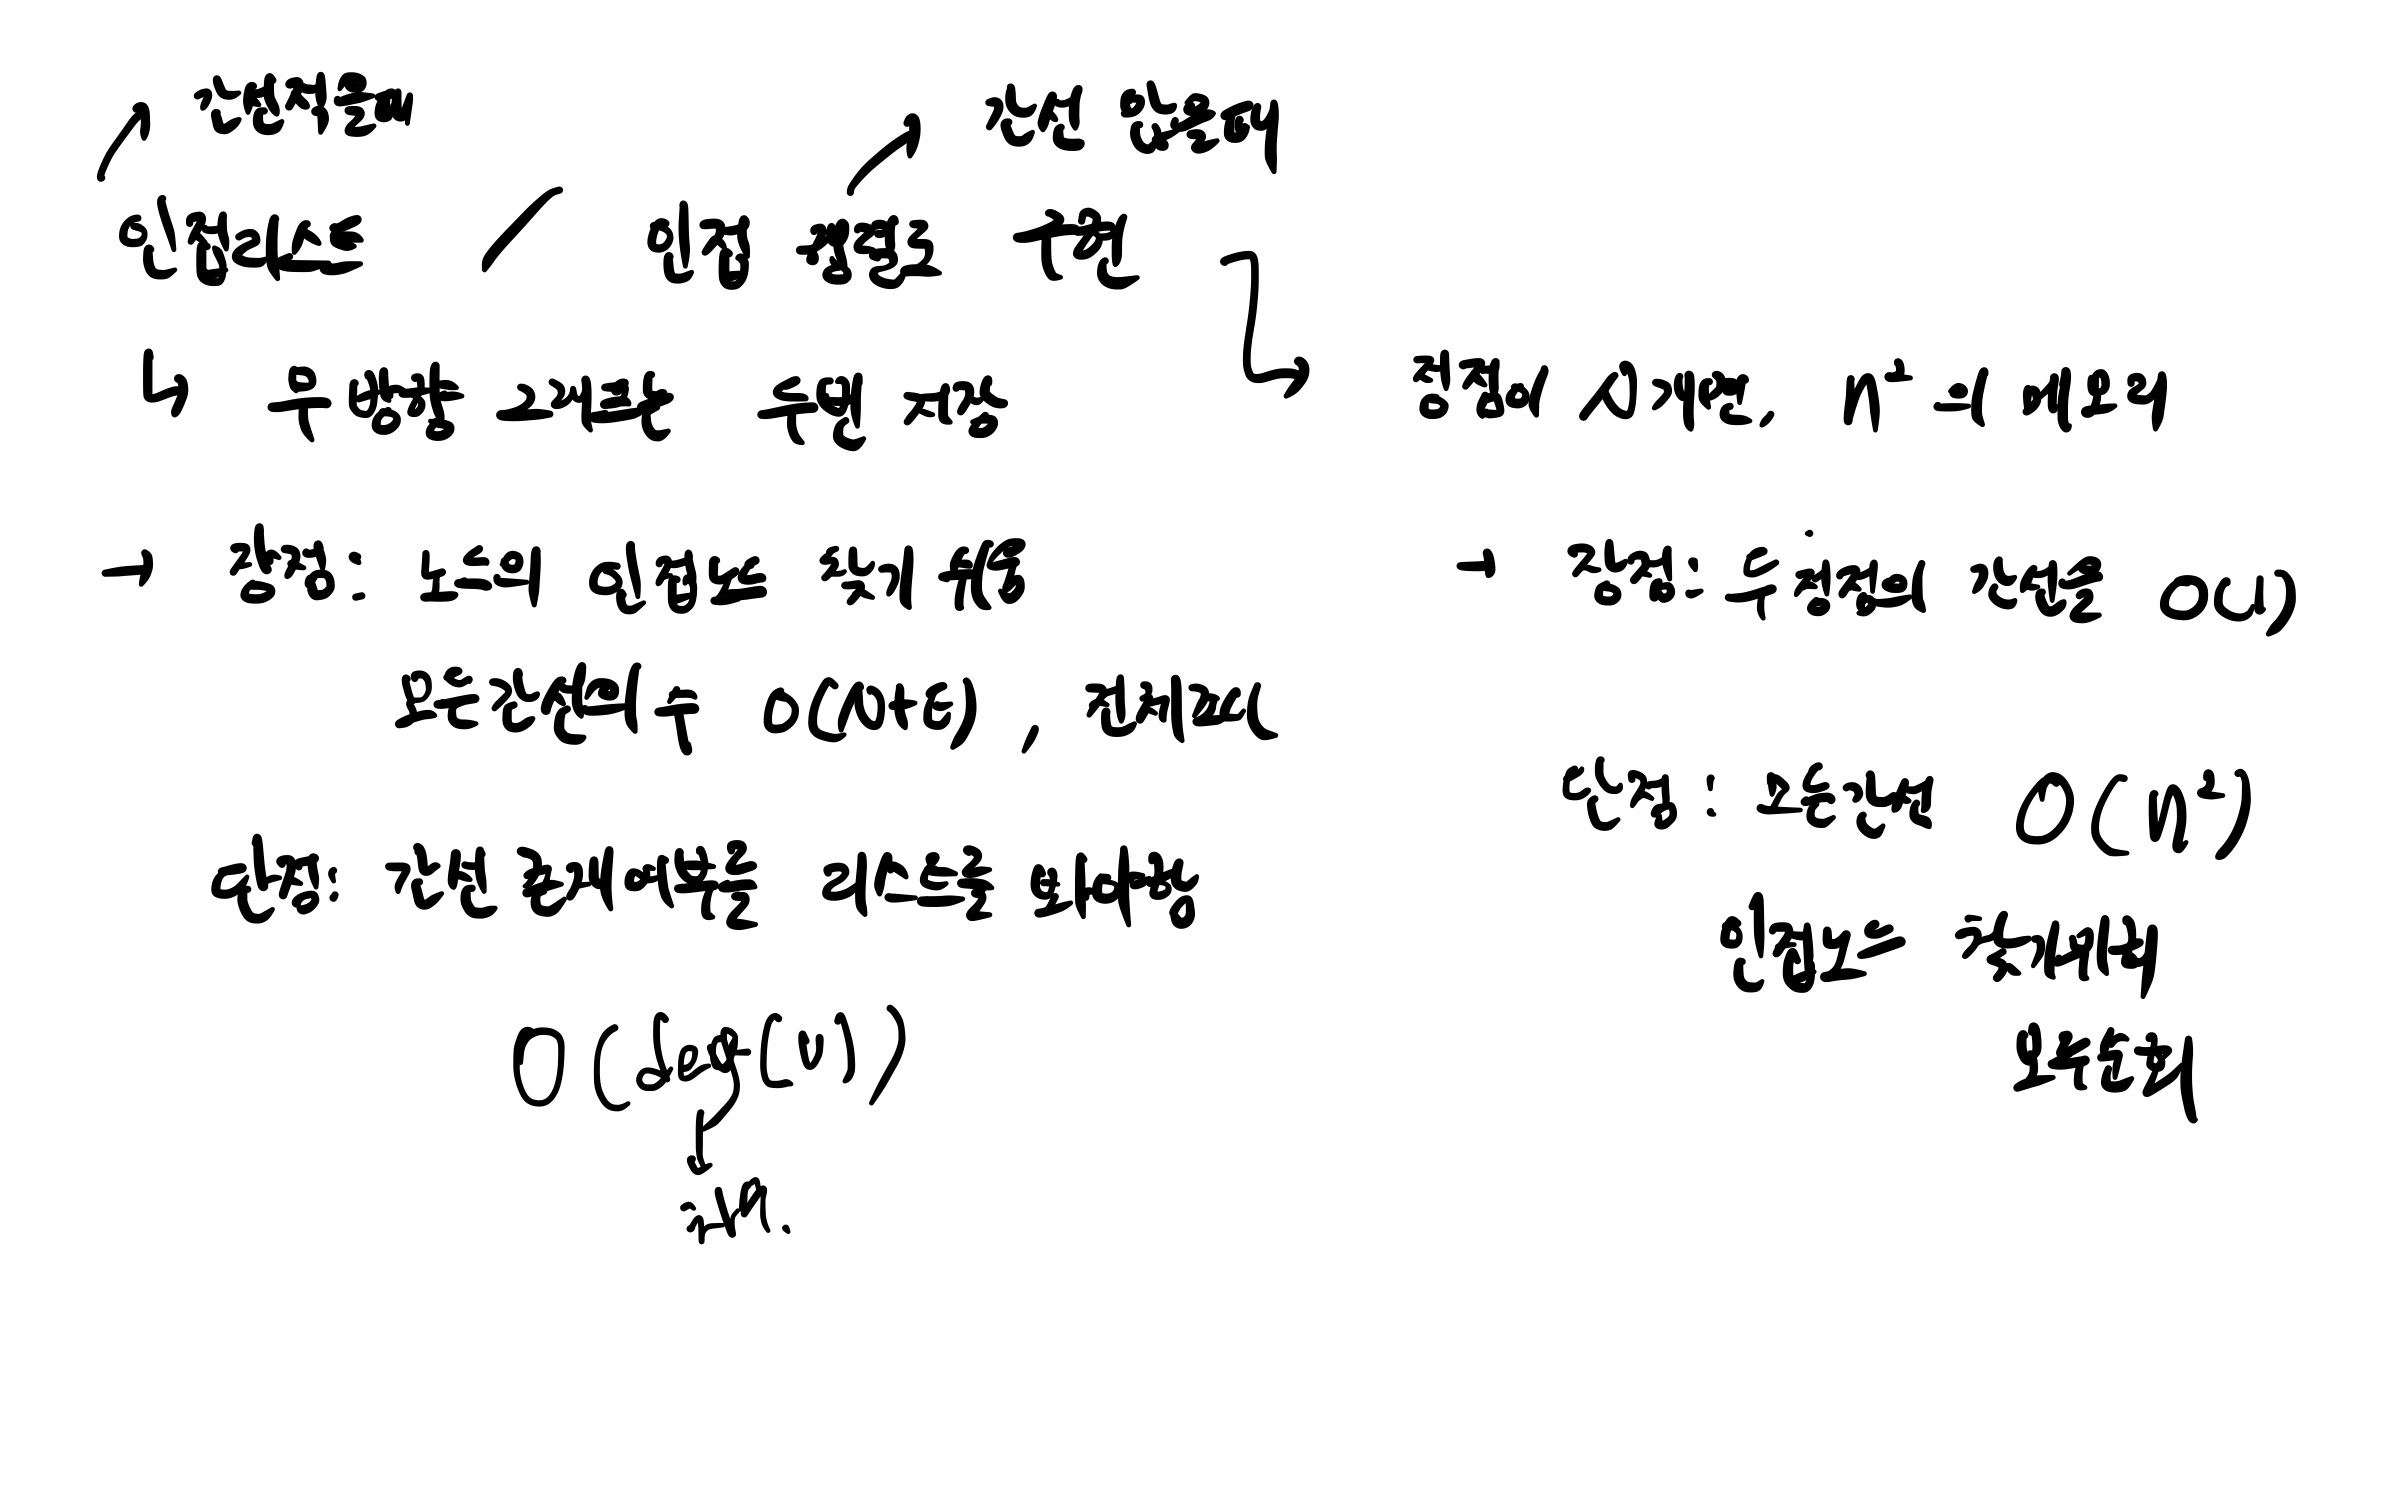 간선 적을때
간선 많을때
인접리스트 / 인접 행렬로 구현
무방향 그래프는 두번 저장
정점이 사개면, n² 의 메모리
→ 장점: 노드의 인접노드 찾기 쉬움
모든간선의수 O(N+E), 전체탐색
단점: 간선 존재여부를 리스트로 봐야함
O(deg(V))
차수.
→ 장점: 두 정점의 간선을 O(1)
단점: 모든간선 O(N²)
인접노드 찾기위해
모두순회